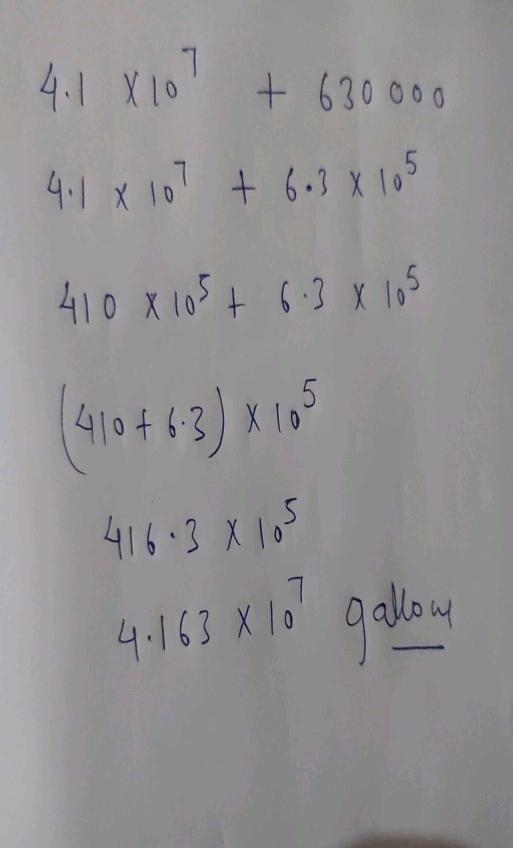 4.1 × 10⁷ + 630 000
4.1 × 10⁷ + 6.3 × 10⁵
410 × 10⁵ + 6.3 × 10⁵
(410 + 6.3) × 10⁵
416.3 × 10⁵
4.163 × 10⁷ gallons